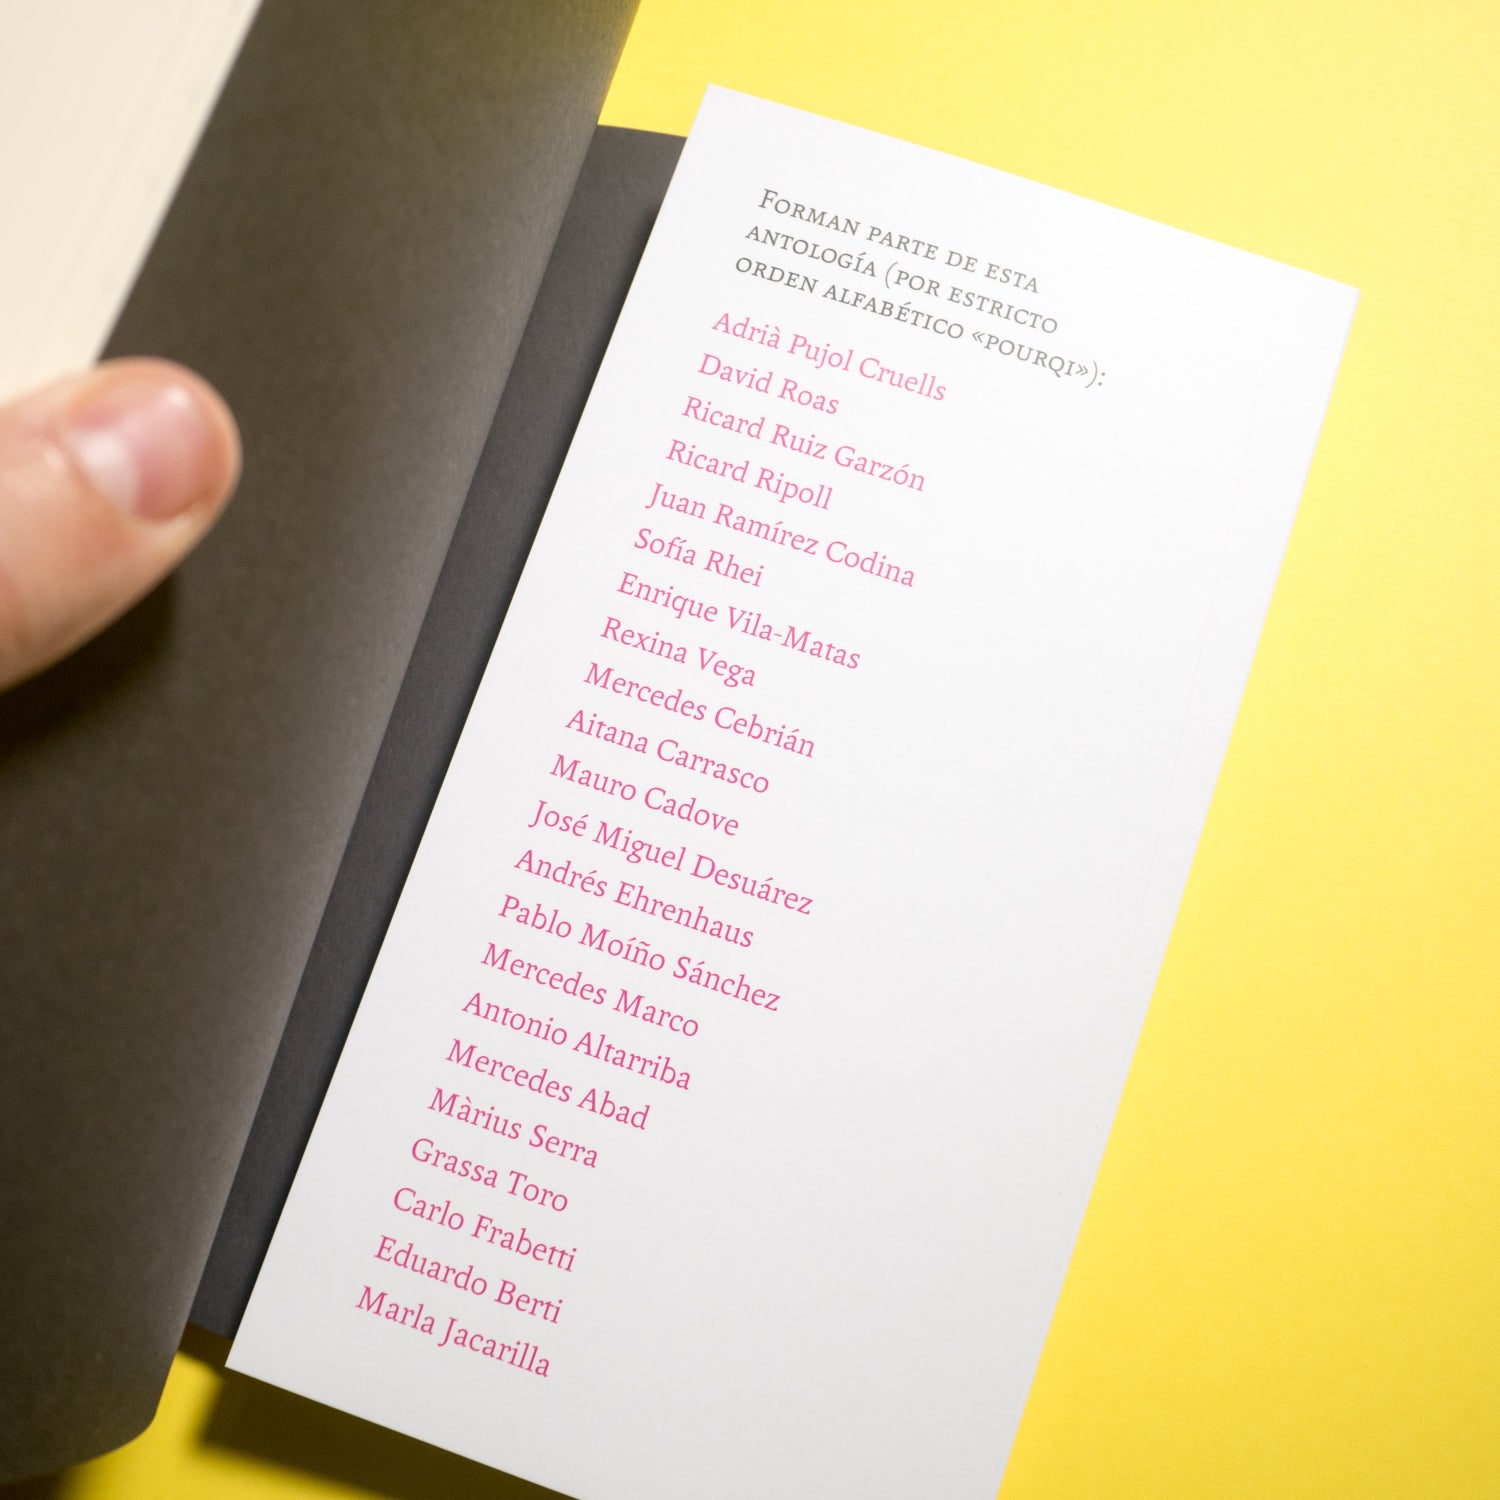 Forman parte de esta
antología (por estricto
orden alfabético «pourqi»):
Adrià Pujol Cruells
David Roas
Ricard Ruiz Garzón
Ricard Ripoll
Juan Ramírez Codina
Sofía Rhei
Enrique Vila-Matas
Rexina Vega
Mercedes Cebrián
Aitana Carrasco
Mauro Cadove
José Miguel Desuárez
Andrés Ehrenhaus
Pablo Moíño Sánchez
Mercedes Marco
Antonio Altarriba
Mercedes Abad
Màrius Serra
Grassa Toro
Carlo Frabetti
Eduardo Berti
Marla Jacarilla